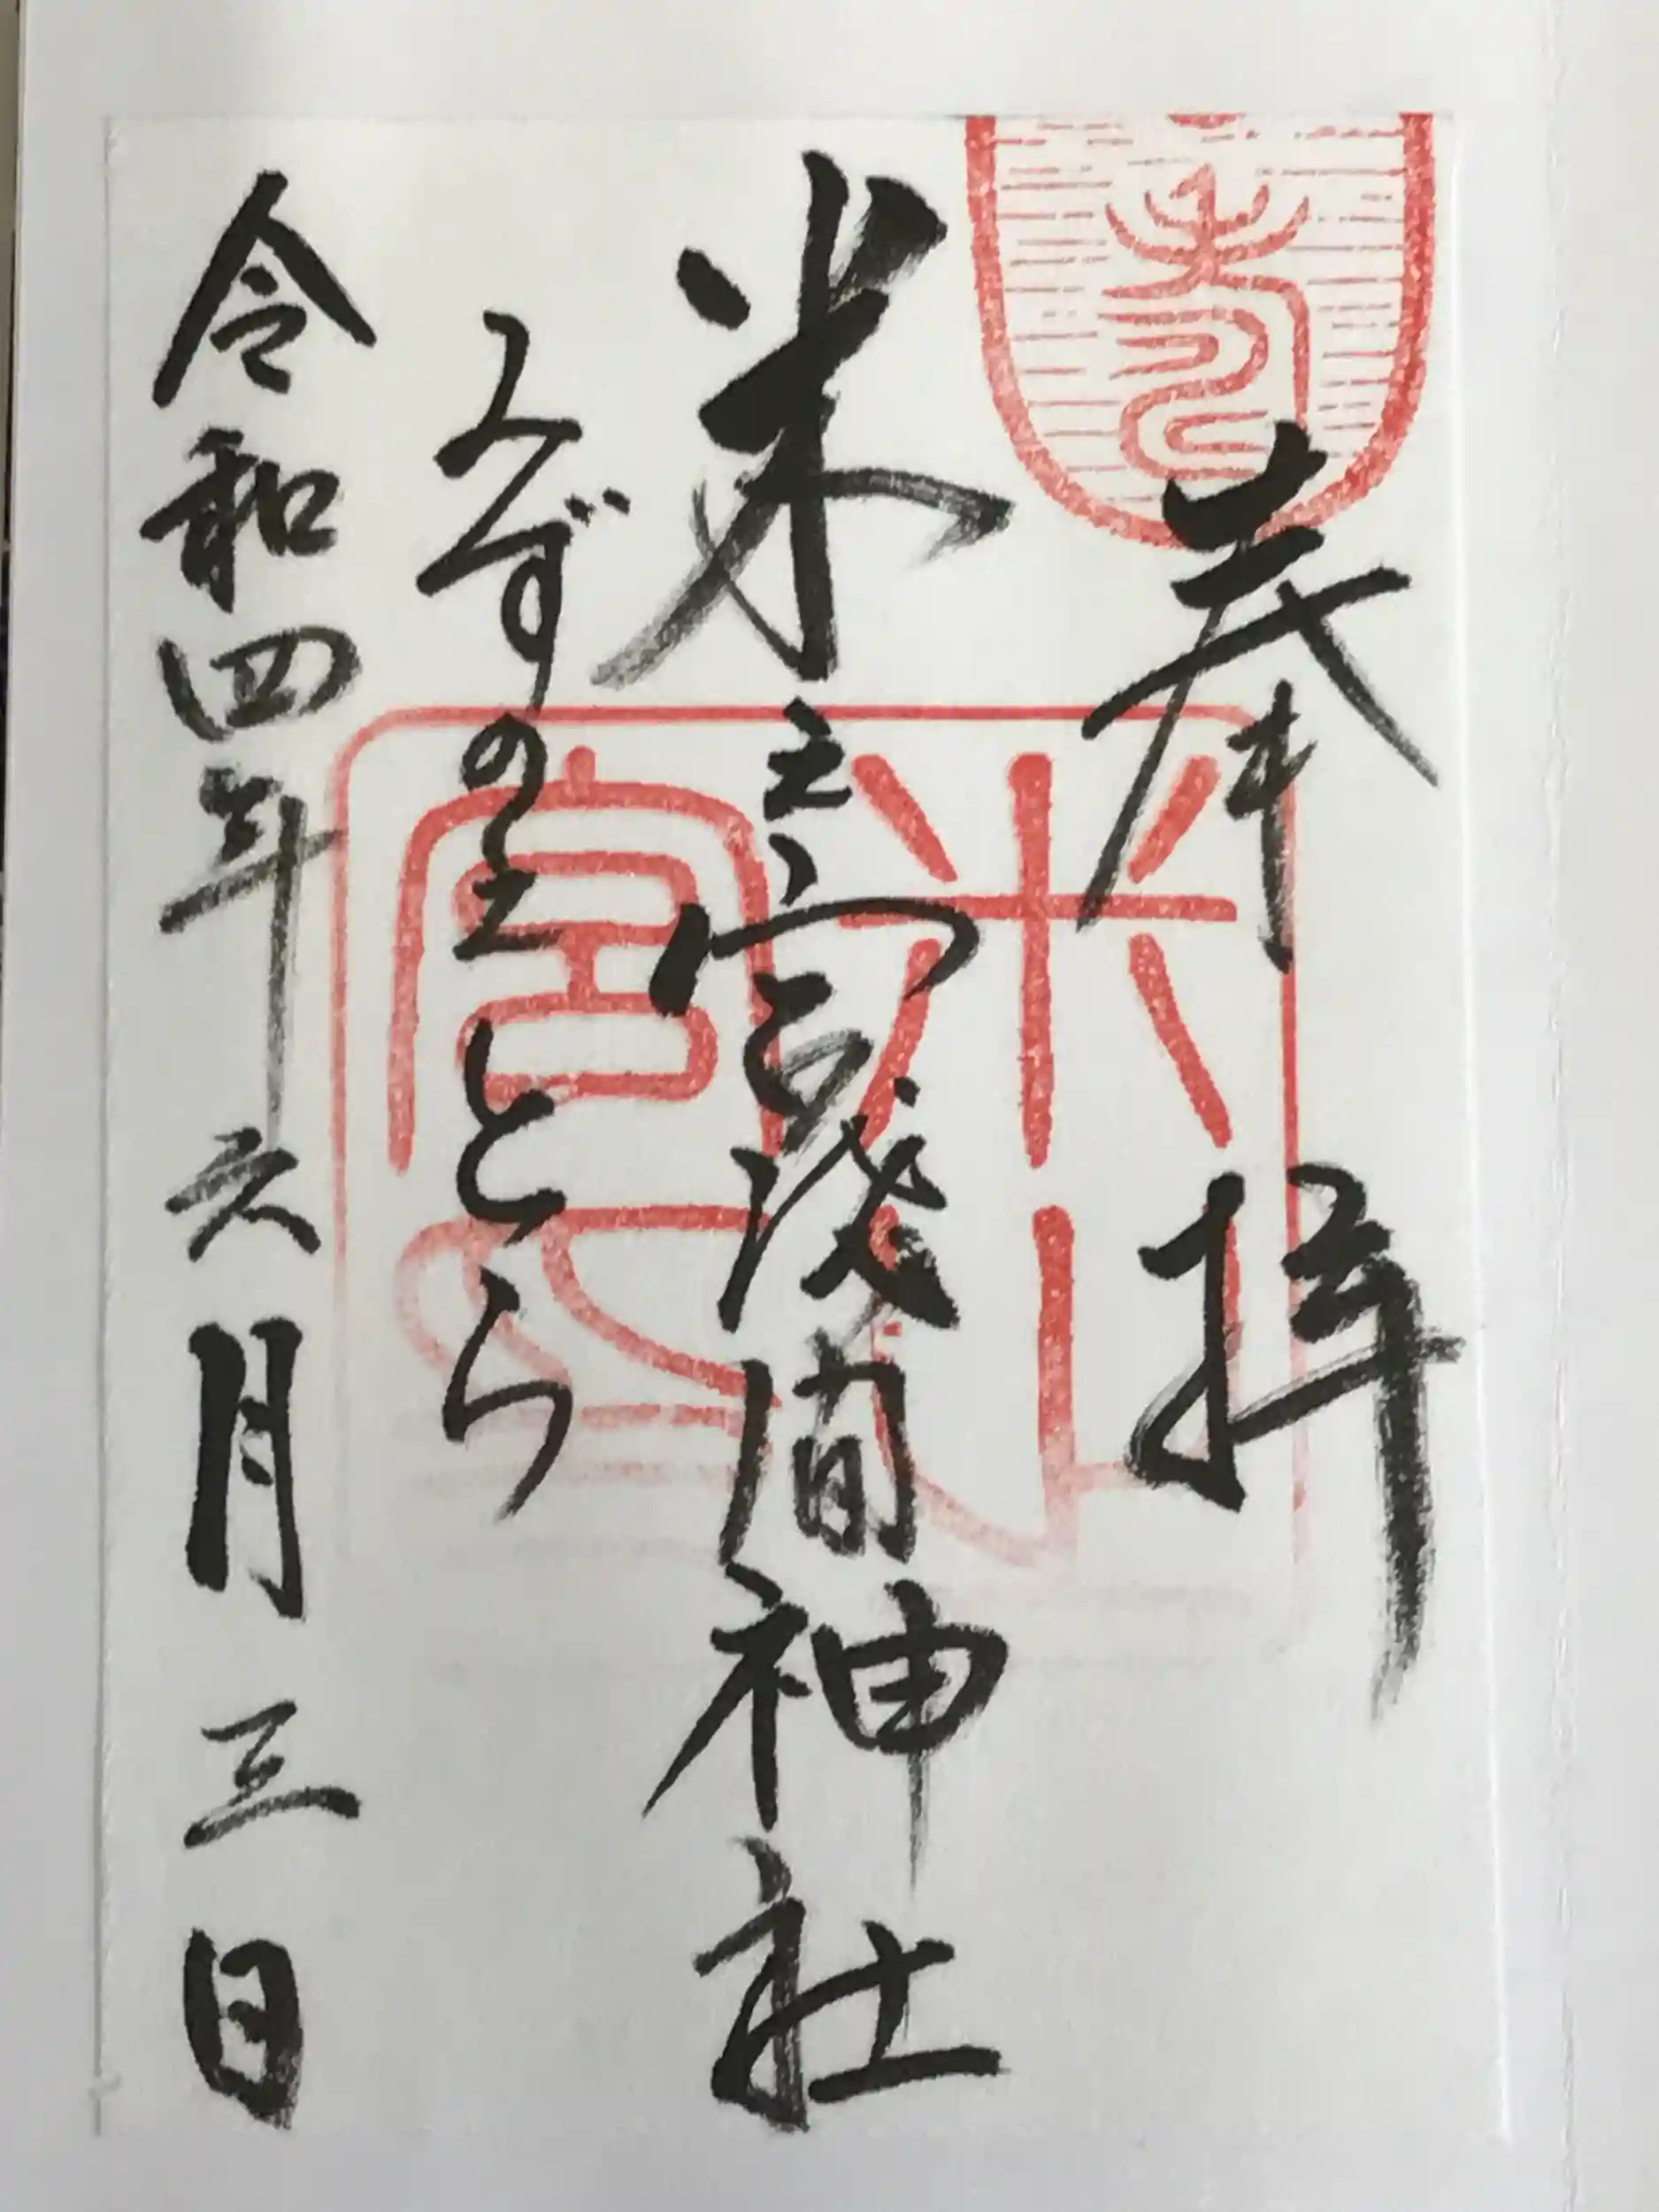 奉拝
米之宮浅間神社
みずのえとら
令和四年六月三日
米山
宮